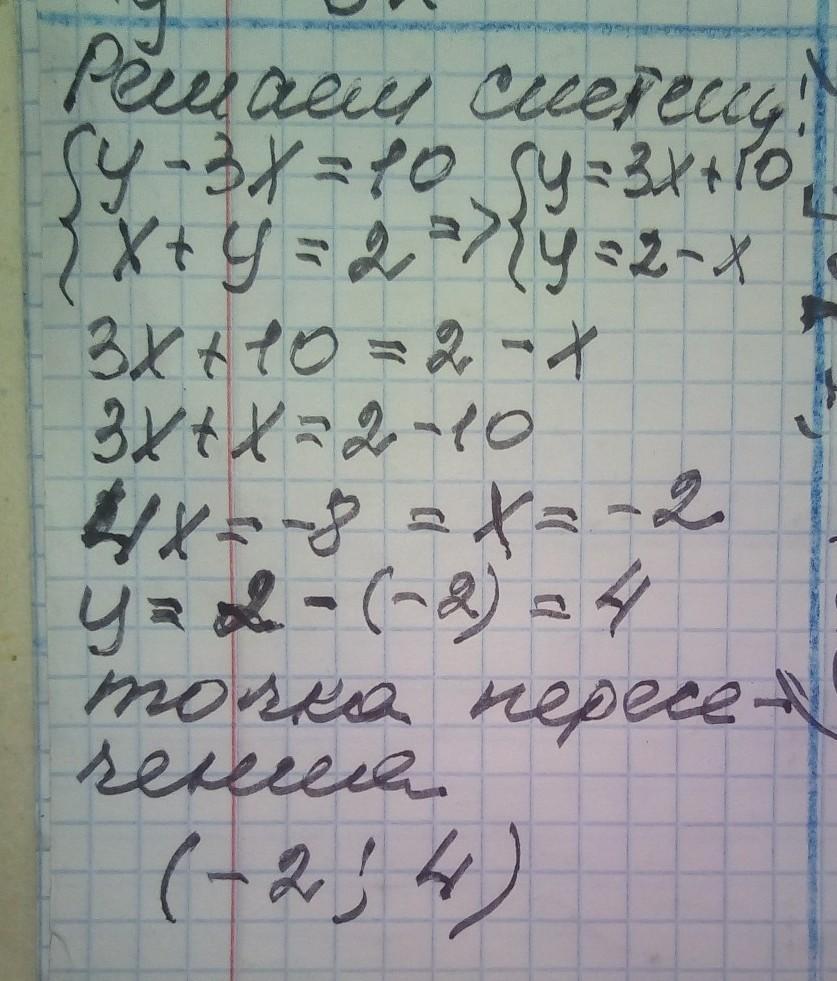 Решаем систему:
{y - 3x = 10 {y = 3x + 10
{x + y = 2 => {y = 2 - x
3x + 10 = 2 - x
3x + x = 2 - 10
4x = -8 = x = -2
y = 2 - (-2) = 4
точка пересе-
чения
(-2; 4)